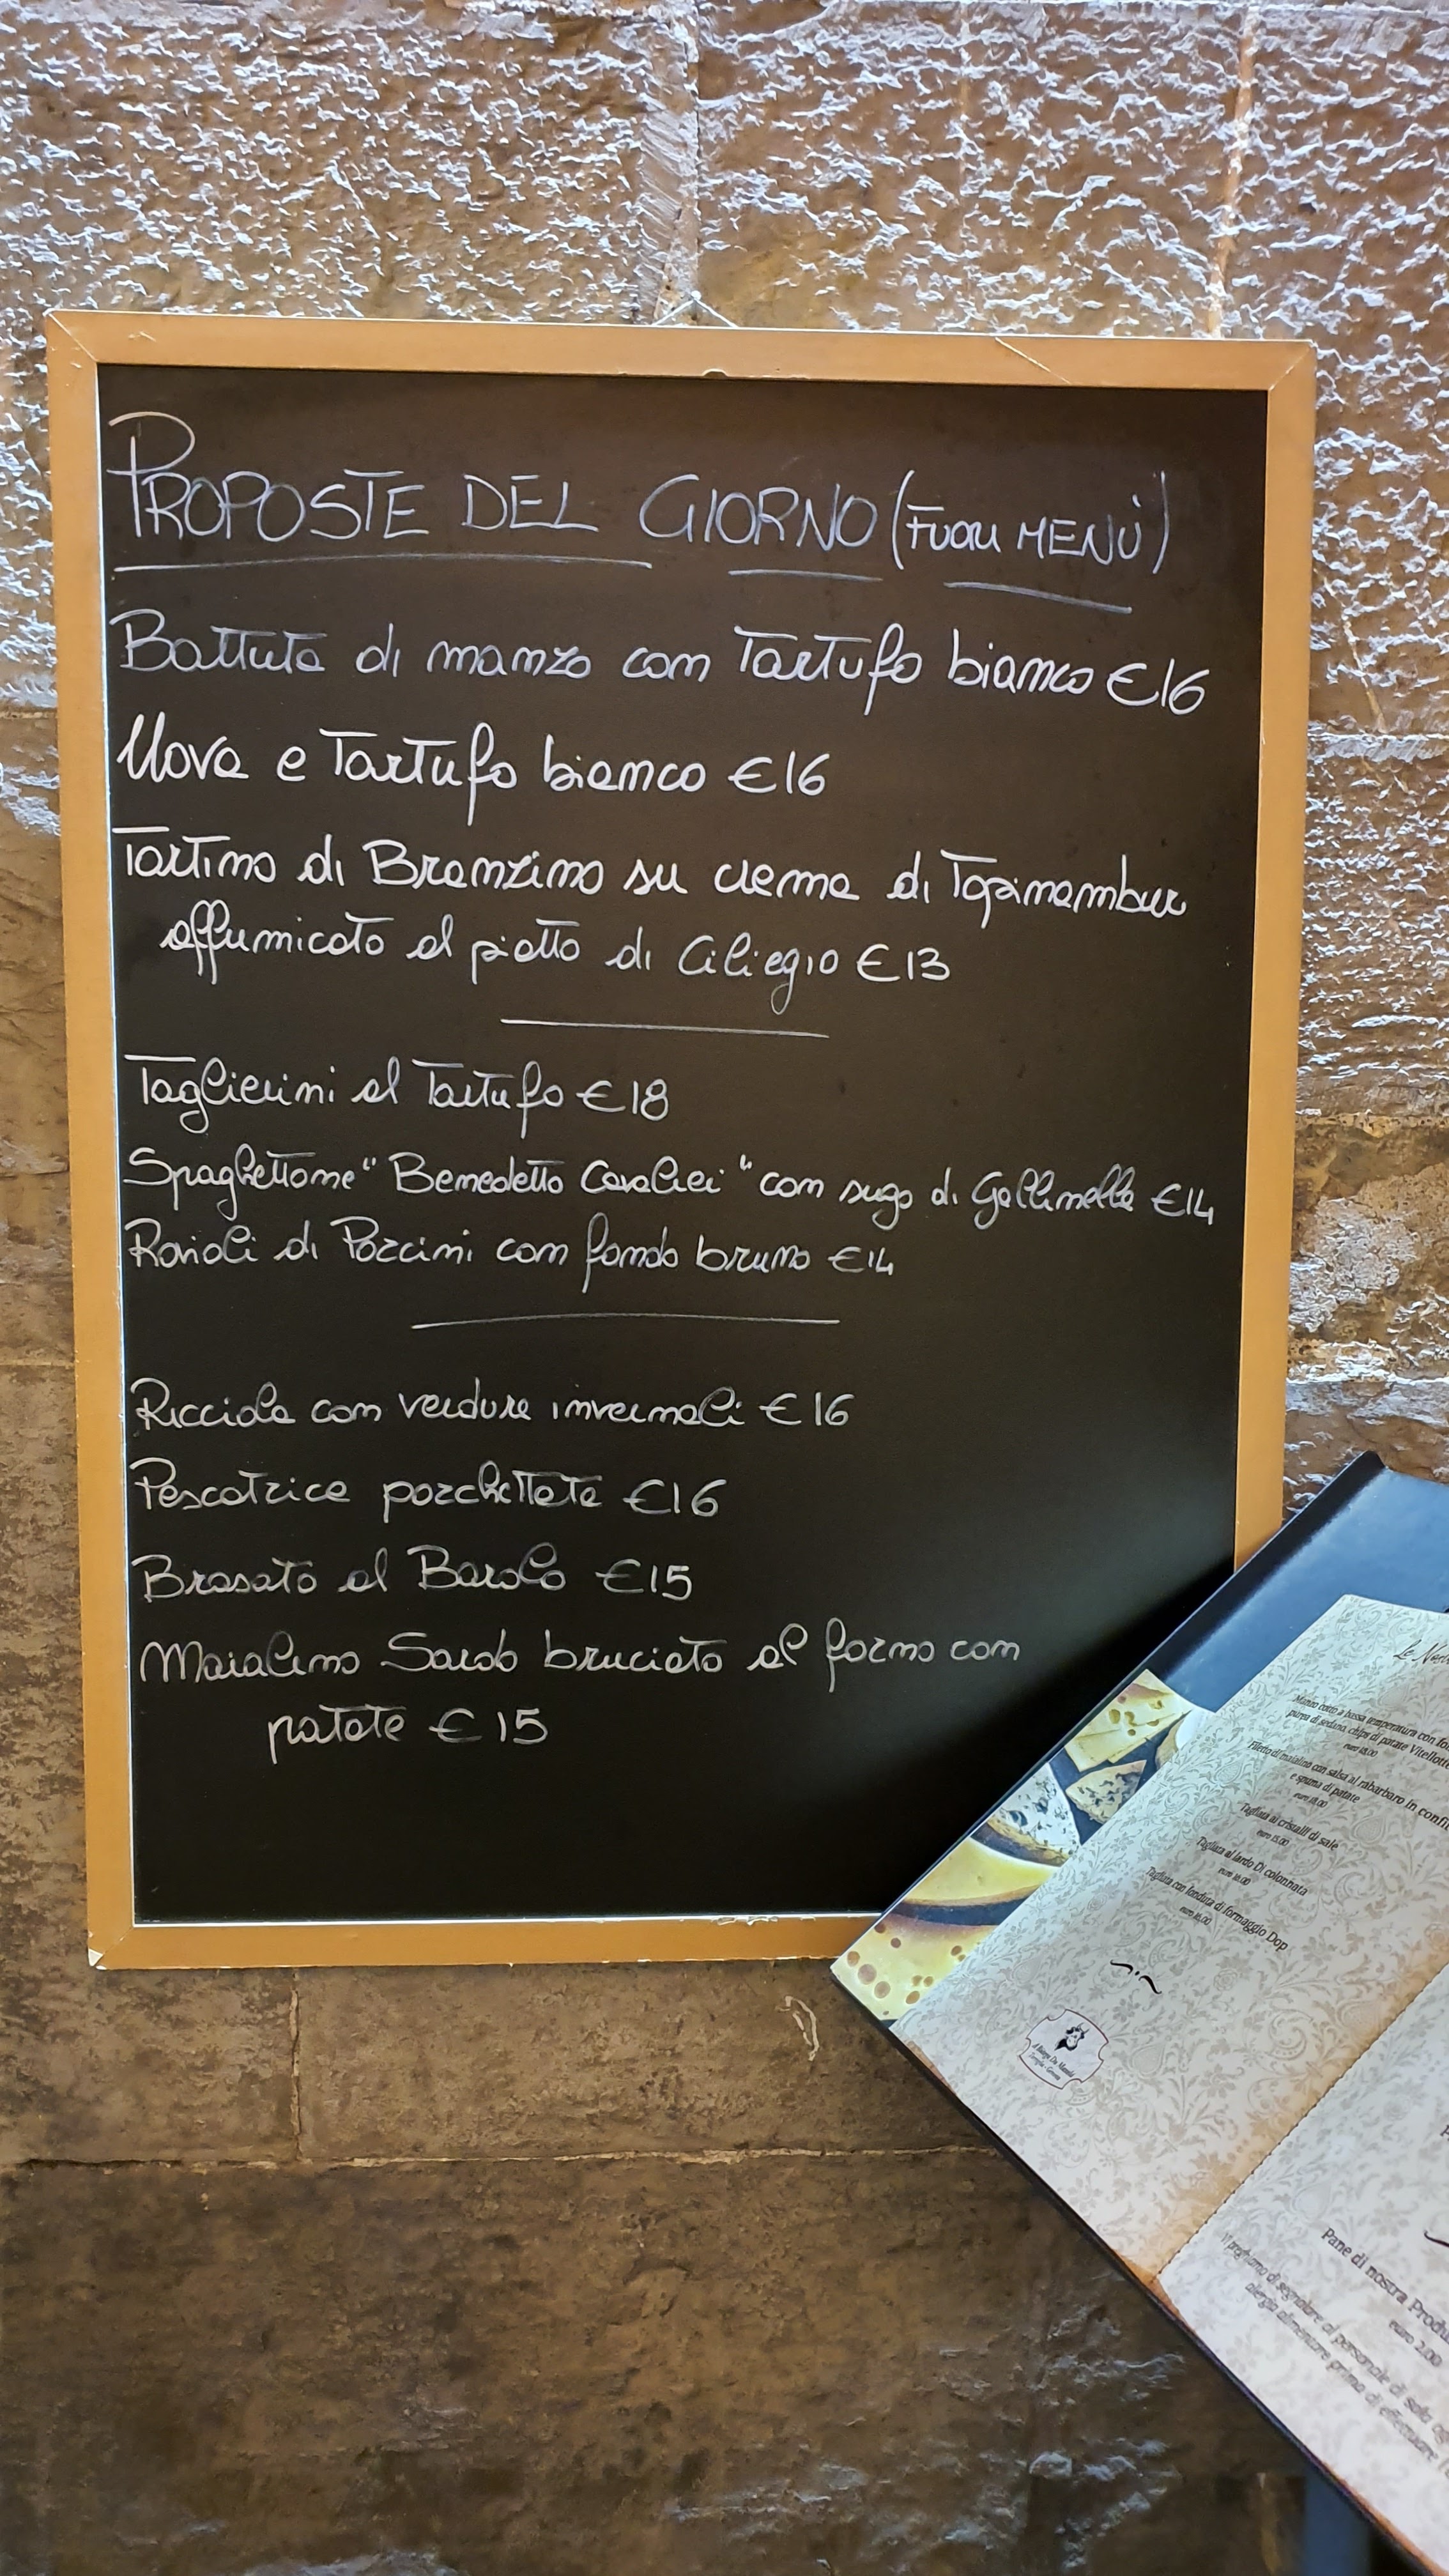 PROPOSTE DEL GIORNO (FUORI MENÙ)
Battuta di manzo con Tartufo bianco €16
Uova e Tartufo bianco €16
Tortino di Branzino su crema di Topinambur
affumicato al piatto di Ciliegio €13
Taglierini al Tartufo €18
Spaghettone "Benedetto Cavalieri" con sugo di Gallinella €14
Ravioli di Porcini con fondo bruno €14
Ricciola con verdure invernali €16
Pescatrice porchettata €16
Brasato al Barolo €15
Maialino Sardo bruciato al forno con
patate €15
Manzo cotto a bassa temperatura con
purea di sedano, chips di patate Vitellotte
euro 18.00
Filetto di maialino con salsa al rabarbaro in
e spuma di patate
euro 18.00
Tagliata ai cristalli di sale
euro 15.00
Tagliata al lardo Di colonnata
euro 16.00
Tagliata con fonduta di formaggio Dop
euro 16.00
Pane di nostra
euro 2.00
Vi preghiamo di segnalare al personale di sala
allergia alimentare prima di effettuare